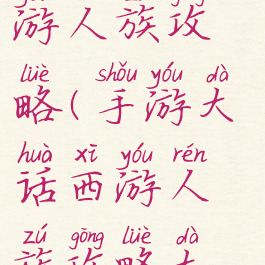 游人族攻
lüè shǒu yóu dà
略(手游大
huà xī yóu rén
话西游人
zú gōng lüè dà
族攻略大